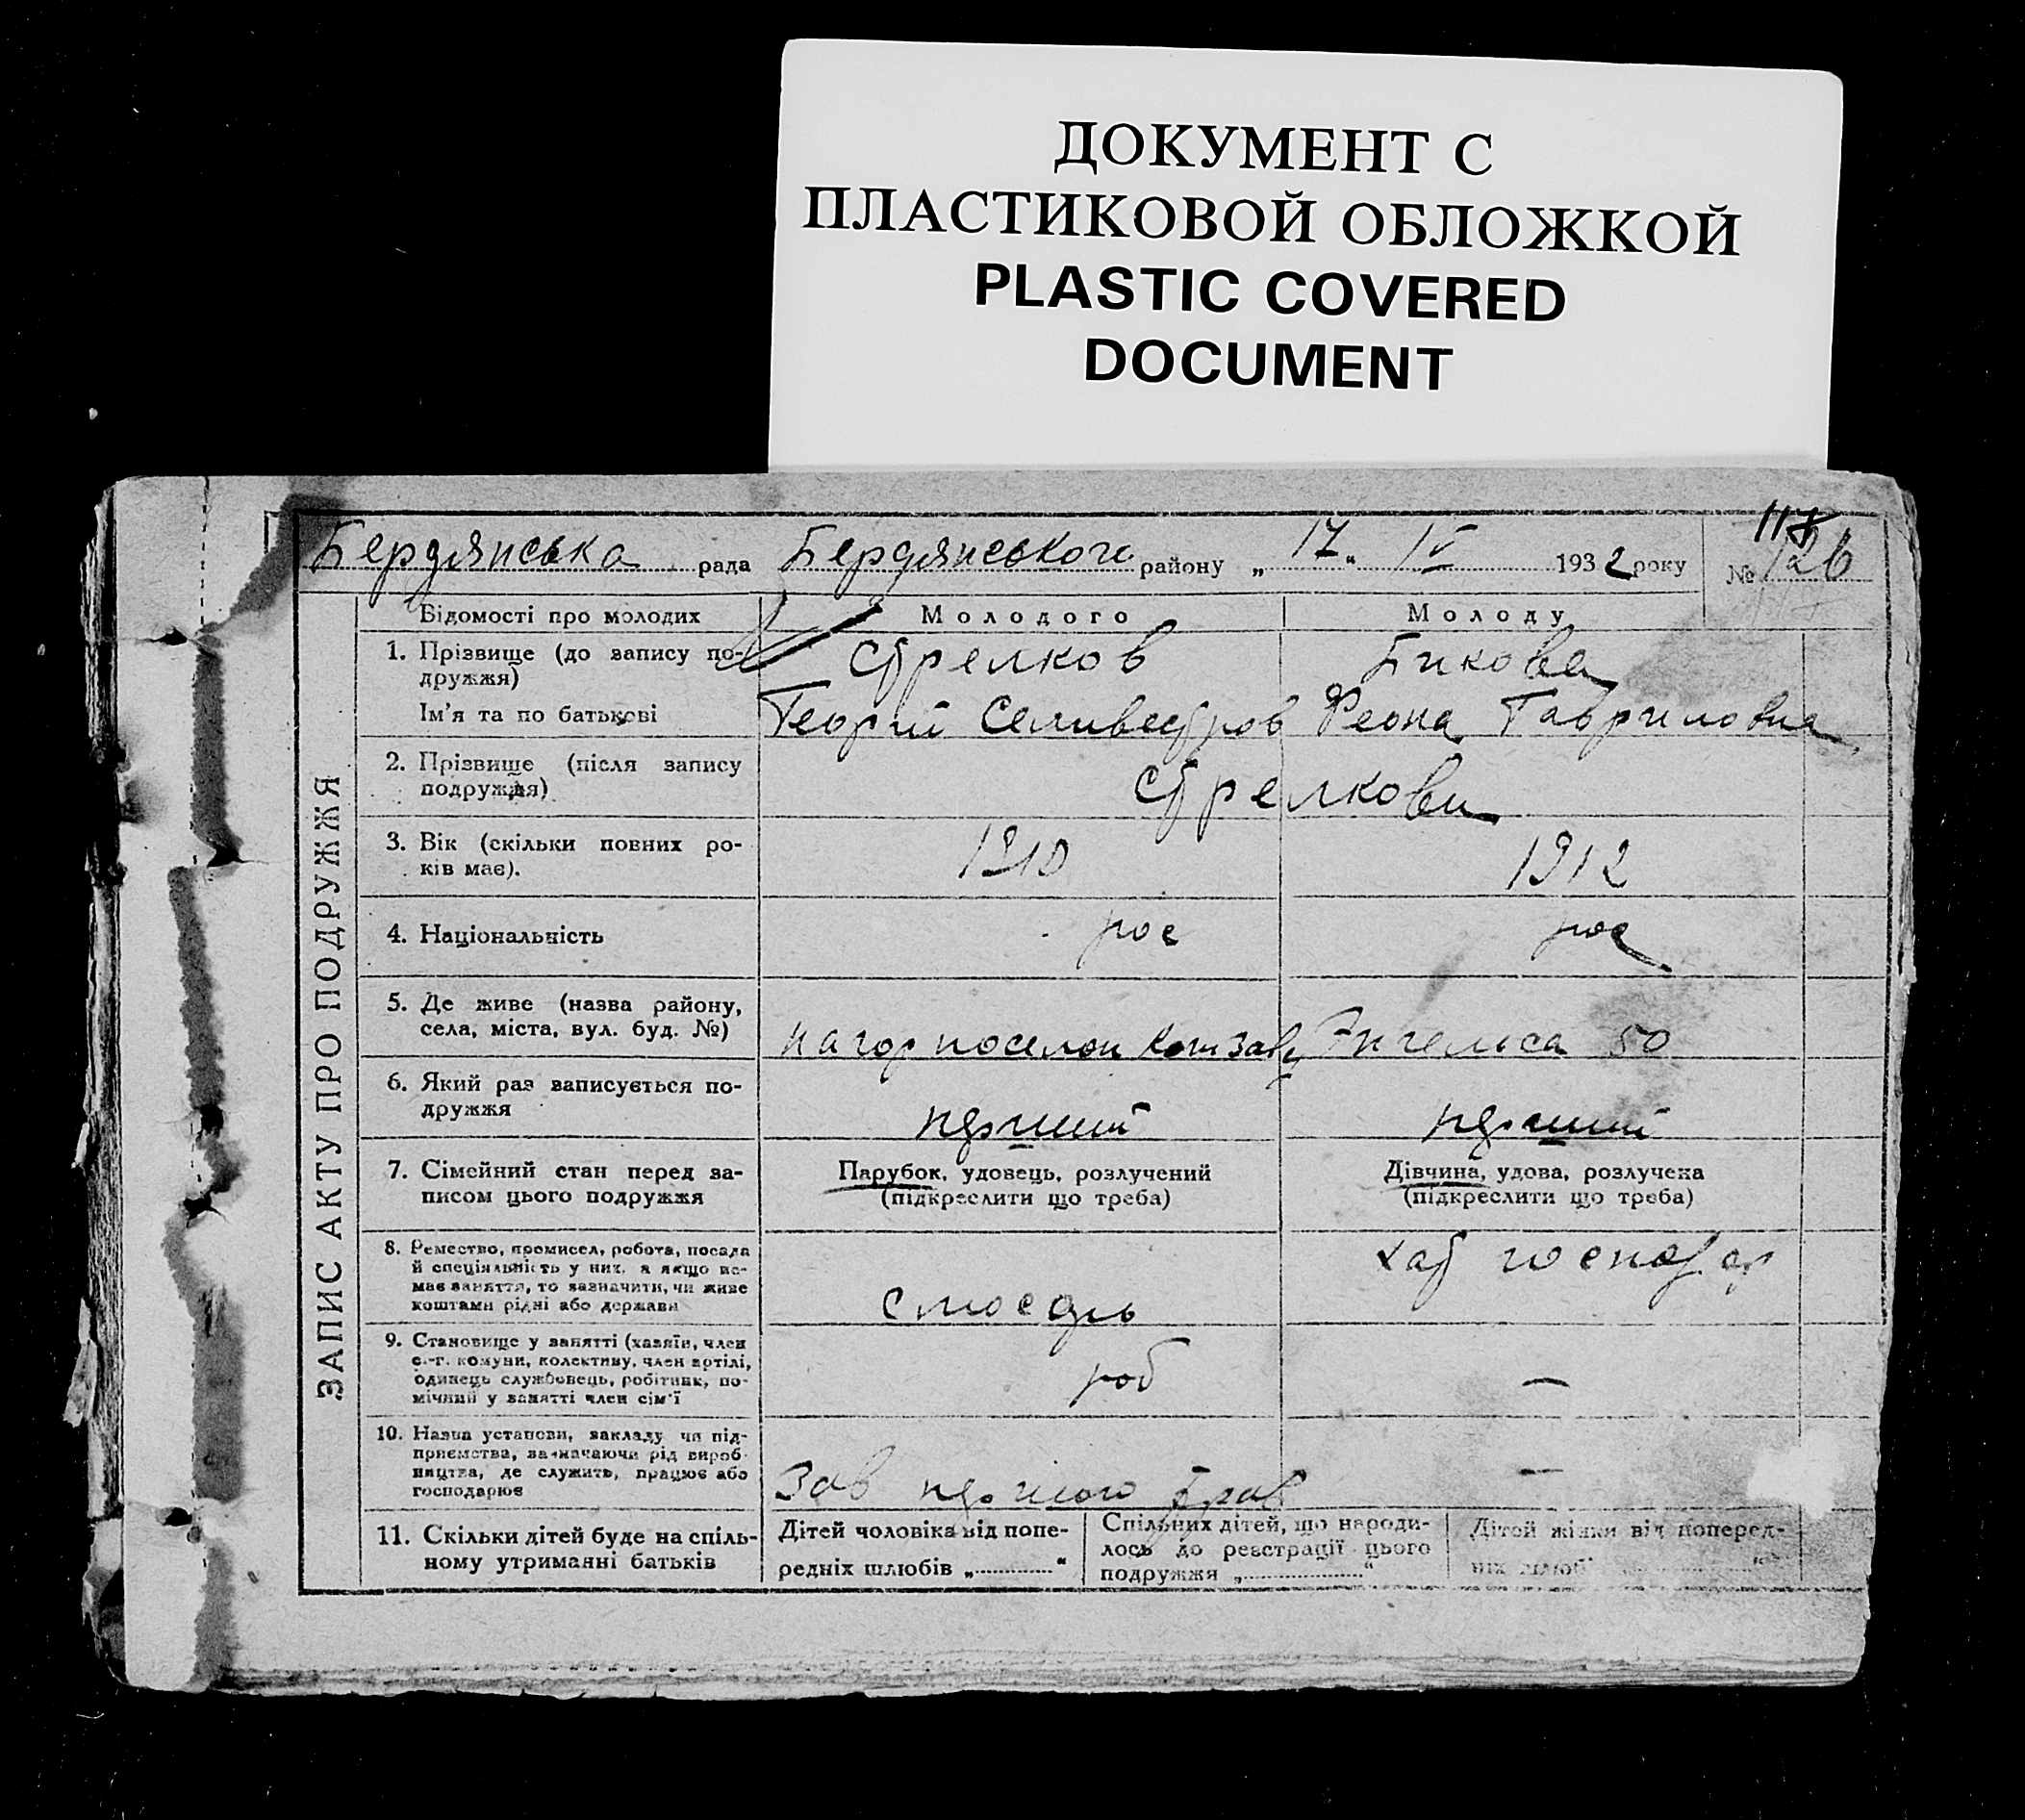 ДОКУМЕНТ С
ПЛАСТИКОВОЙ ОБЛОЖКОЙ
PLASTIC COVERED
DOCUMENT
Бердянська рада Бердянського району „17“ IV 1932 року № 126
117
ЗАПИС АКТУ ПРО ПОДРУЖЖЯ
Відомості про молодих Молодого Молоду
1. Прізвище (до запису по-
дружжя) Стрелков Бикова
Ім'я та по батькові Георгій Селивестров Феона Гавриловна
2. Прізвище (після запису
подружжя) Стрелкови
3. Вік (скільки повних ро-
ків має). 1910 1912
4. Національність рос рос
5. Де живе (назва району,
села, міста, вул. буд. №) нагор поселок Енгельса 50
6. Який раз записується по-
дружжя перший перший
7. Сімейний стан перед за-
писом цього подружжя
Парубок, удовець, розлучений
(підкреслити що треба)
Дівчина, удова, розлучена
(підкреслити що треба)
8. Ремество, промисел, робота, посада
й спеціяльність у них, а якщо не-
має заняття, то зазначити, чи живе
коштами рідні або держави
слюсарь хат господар
9. Становище у занятті (хазяїн, член
с.-г. комуни, колективу, член артілі,
одинець службовець, робітник, по-
мічний у занятті член сім'ї
роб —
10. Назва установи, закладу чи під-
приємства, зазначаючи рід вироб-
ництва, де служить, працює або
господарює
Зав —
11. Скільки дітей буде на спіль-
ному утриманні батьків
Дітей чоловіка від попе-
редніх шлюбів „............“
Спільних дітей, що народи-
лось до реєстрації цього
подружжя „............“
Дітей жінки від поперед-
ніх шлюб